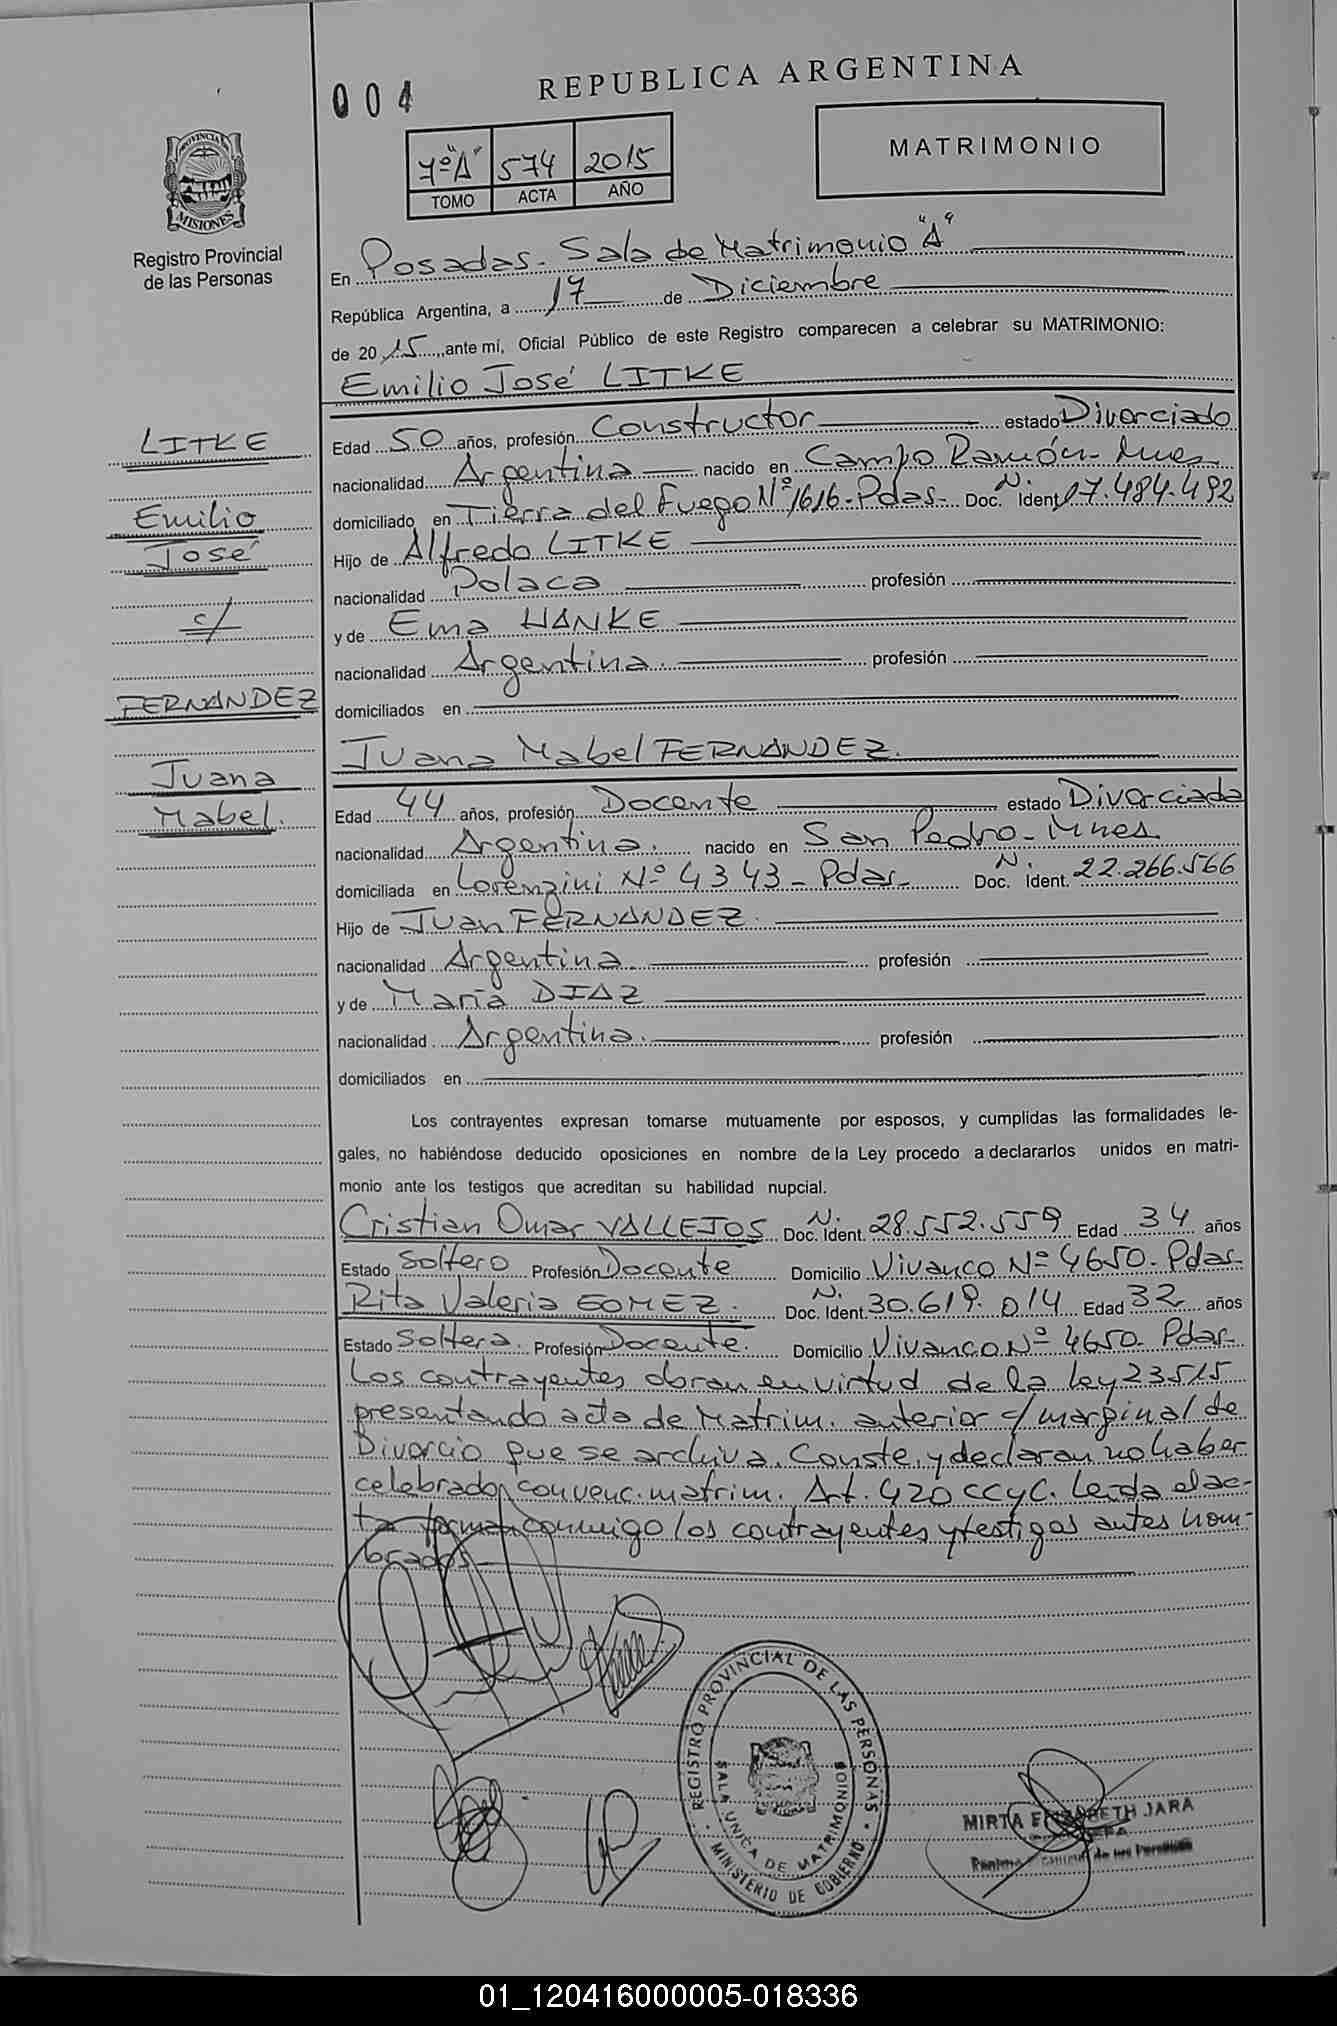 004
REPUBLICA ARGENTINA
7º "A" 574 2015
TOMO ACTA AÑO
MATRIMONIO
PROVINCIA
MISIONES
Registro Provincial
de las Personas
En Posadas. Sala de Matrimonio "A"
República Argentina, a 17 de Diciembre
de 2015, ante mí, Oficial Público de este Registro comparecen a celebrar su MATRIMONIO:
Emilio José LITKE
LITKE
Emilio
José
c/
FERNANDEZ
Juana
Mabel.
Edad 50 años, profesión Constructor estado Divorciado
nacionalidad Argentina nacido en Campo Ramón-Mnes
domiciliado en Tierra del Fuego Nº 1616-Pdas- Doc. N. Ident 17.484.492
Hijo de Alfredo LITKE
nacionalidad Polaca profesión
y de Ema HANKE
nacionalidad Argentina. profesión
domiciliados en
Juana Mabel FERNANDEZ.
Edad 44 años, profesión Docente estado Divorciada
nacionalidad Argentina. nacido en San Pedro-Mnes
domiciliada en Lorenzini Nº 4343-Pdas- Doc. N. Ident. 22.266.566
Hijo de Juan FERNANDEZ.
nacionalidad Argentina profesión
y de María DIAZ
nacionalidad Argentina. profesión
domiciliados en
Los contrayentes expresan tomarse mutuamente por esposos, y cumplidas las formalidades le-
gales, no habiéndose deducido oposiciones en nombre de la Ley procedo a declararlos unidos en matri-
monio ante los testigos que acreditan su habilidad nupcial.
Cristian Omar VALLEJOS Doc. N. Ident. 28.552.559 Edad 34 años
Estado Soltero Profesión Docente Domicilio Vivanco Nº 4650-Pdas-
Rita Valeria GOMEZ. Doc. N. Ident. 30.619.014 Edad 32 años
Estado Soltera. Profesión Docente. Domicilio Vivanco Nº 4650-Pdas-
Los contrayentes obran en virtud de la Ley 23515
presentando acta de Matrim. anterior c/ marginal de
Divorcio que se archiva. Conste, y declaran no haber
celebrado convenc. matrim. Art. 420 CCyC. Leída el ac-
ta firman conmigo los contrayentes y testigos antes nom-
brados
REGISTRO PROVINCIAL DE LAS PERSONAS
SALA UNICA DE MATRIMONIOS
MINISTERIO DE GOBIERNO
MIRTA ELIZABETH JARA
JEFA
de las Personas
01_120416000005-018336